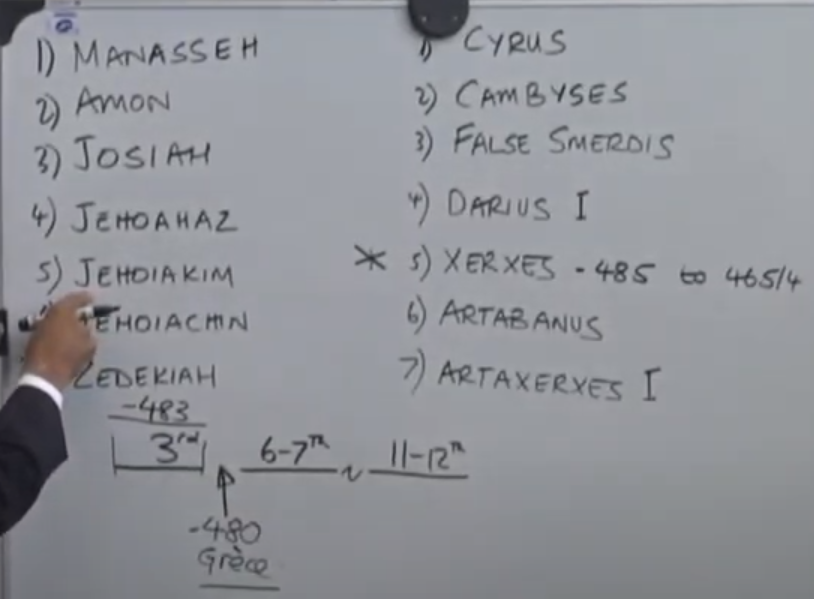 1) MANASSEH
2) AMON
3) JOSIAH
4) JEHOAHAZ
5) JEHOIAKIM
EHOIACHIN
ZEDEKIAH
1) CYRUS
2) CAMBYSES
3) FALSE SMERDIS
4) DARIUS I
* 5) XERXES - 485 to 465/4
6) ARTABANUS
7) ARTAXERXES I
-483
3rd 6-7th ~ 11-12th
-480
Grèce